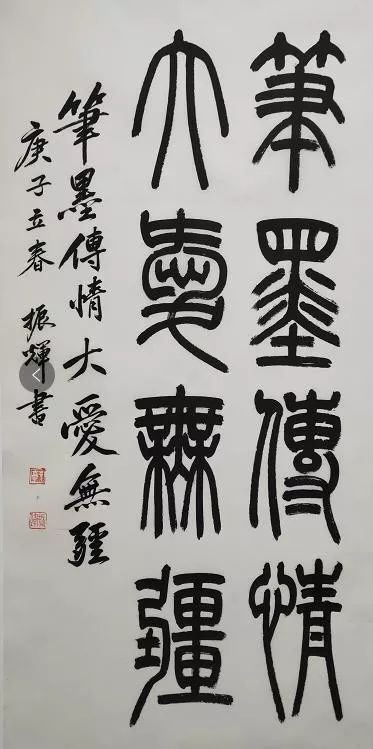 筆墨傳情
大愛無疆
筆墨傳情大愛無疆
庚子立春 振輝書